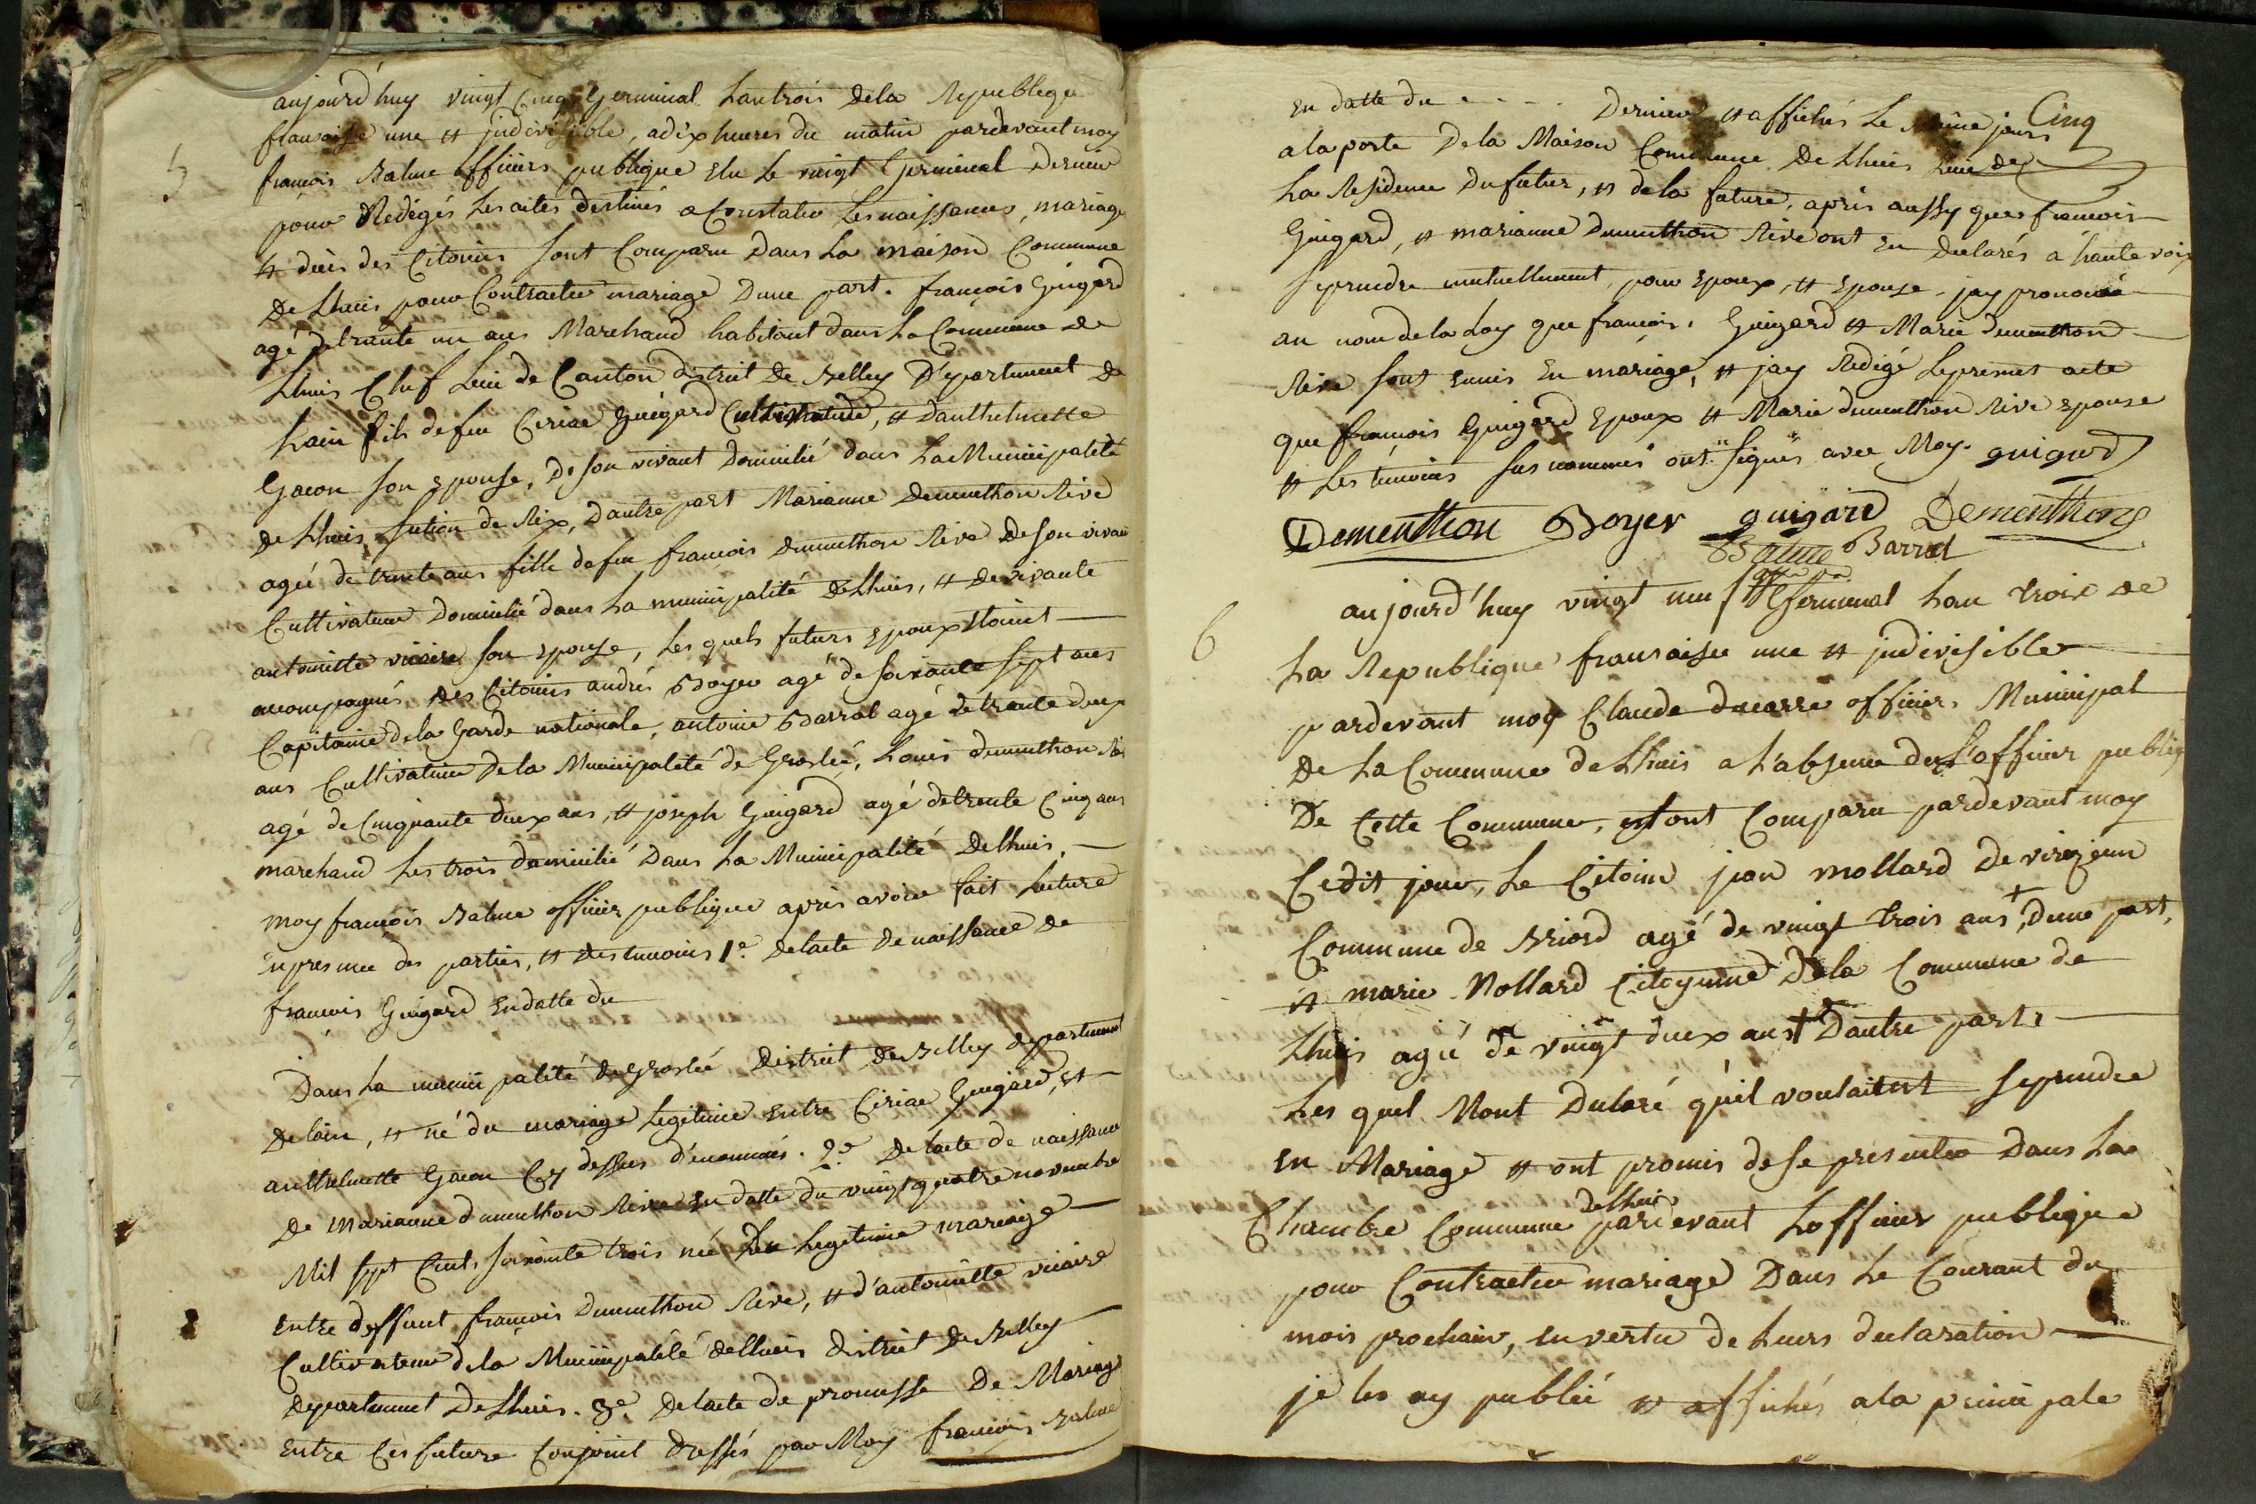 aujourd'huy vingt Cinq Germinal Lan trois dela Republeque
francoise une et jndivisible, adix heures du matin pardevant moy
5
francois Balme officiers publique Elu le vingt Germinal Dernier
pour Redigés Les actes destinés a Constater Les naissances, mariage
et décès des Citoiens sont Comparu Dans La maison Commune
De Lhuis pour Contracter mariage Dune part. françois Guigard
agé detrante un ans Marchand habitant dans La Commune de
Lhuis Chef Lieu de Canton district de Belley D'epartement de
Lain fils defeu Ciriac Guigard Cultivateur, et Danthelmette
Gacon son Epouse, De son vivant Domicilié dans La Municipalité
de Lhuis section de Rix, Dautre part Marianne Dementhon Rive
agée de trente ans fille defeu francois Dementhon Rive De son vivan
Cultivateur Domicilié dans La municipalité de Lhuis, et de vivante
antoinette vicaire son Epouse, Les quels futurs Epoux Etoient
accompagnés Des Citoiens andrés Boyer agé de soixante sept ans
Capitaine dela Garde nationale, antoine Barral agé detrante deux
ans Cultivateur De la Municipalité de Groslée, Louis dementhon
agé de Cinquante deux ans, et joseph Guigard agé detrente Cinq ans
marchand Les trois domicilié Dans La Municipalité De Lhuis,
Moy françois Balme officier publique après avoir fait Lecture
En presence des parties, et des temoins 1e. De Lacte De naissance De
francois Guigard En datte du
Dans La municipalité de Groslée District de Belley Departement
Delain, et né du mariage Legitime Entre Ciriac Guigard, et
anthelmette Gacon Cy dessus dénommés. 2e. De Lacte de naissance
De Marianne dementhon Rive En datte du vingt quatre novembre
Mil sept Cent, soixante trois née Legetime mariage
Entre deffunt francois Dementhon Rive, et d'antoinette vicaire
Cultivateur dela Municipalité De Lhuis district de Belley
Departement De Lhuis. 3e. De Lacte de promesse De Mariage
Entre Ces future Conjoint dressés par Moy francois Balme
En datte du . . - . Dernier et affichés Le même jours Cinq
ala porte De la Maison Commune De Lhuis Lieu de
La Residence Dufutur, et de la future, après aussy que francois
Guigard, et marianne Dementhon Rive ont Eu declarés a haute voix
se prendre mutuellement pour Epoux, et Epouse jay prononcé
au nom dela Loy que francois. Guigard et Marie dementhon
Rive sont eunis En mariage, et jay Redigé Le present acte
que francois Guigard Epoux et Marie dementhon Rive epouse
et Les temoins sus nommés ont signés avec Moy. guigard
Dementhon Boyer guigard Dementhon
Balme Barral
6
aujourd'huy vingt neuf Germinal Lan trois de
La Republique francaise une et jndivisible
pardevant moy Claude ducarre officier Municipal
De La Commune de Lhuis a L'absence de L'officier publiq
De Cette Commune, ont Comparu pardevant moy
Cedit jour, Le Citoien jean mollard De
Commune de Briord agé de vingt trois ans + Dune part,
et marie Mollard Citoyenne Dela Commune de
Lhuis agée de vingt deux ans + Dautre part,
Les quel Mont Declaré qu'il voulaitent se prendre
En Mariage et ont promis de se presenter Dans La
Chambre Commune de Lhuis pardevant Lofficier publique
pour Contracter mariage Dans Le Courant du
mois prochain, En vertu de Leurs declaration
je les ay publié et affichés ala principale